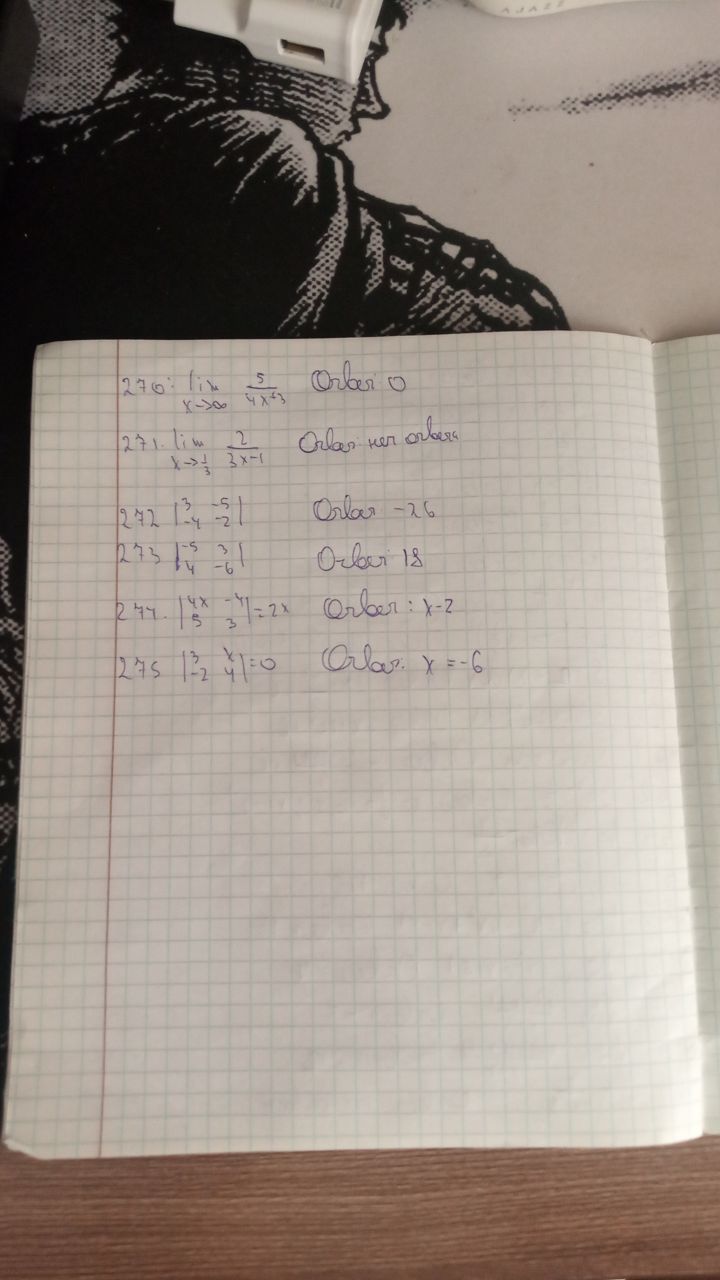 AJAZZ
270. lim x→∞ 5/4x+3 Ответ 0
271. lim x→1/3 2/3x-1 Ответ нет ответа
272 |3 -5; -4 -2| Ответ -26
273 |-5 3; 4 -6| Ответ 18
274. |4x -4; 5 3| = 2x Ответ: x-2
275 |3 x; -2 4| = 0 Ответ: x = -6